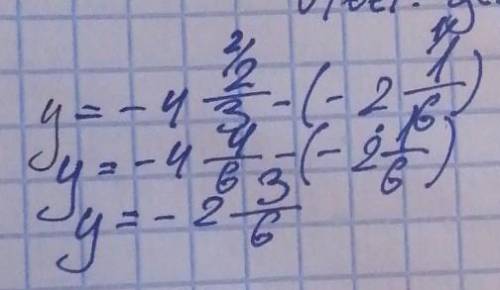 y = - 4 2/3 - (- 2 1/6)
y = - 4 4/6 - (- 2 1/6)
y = - 2 3/6